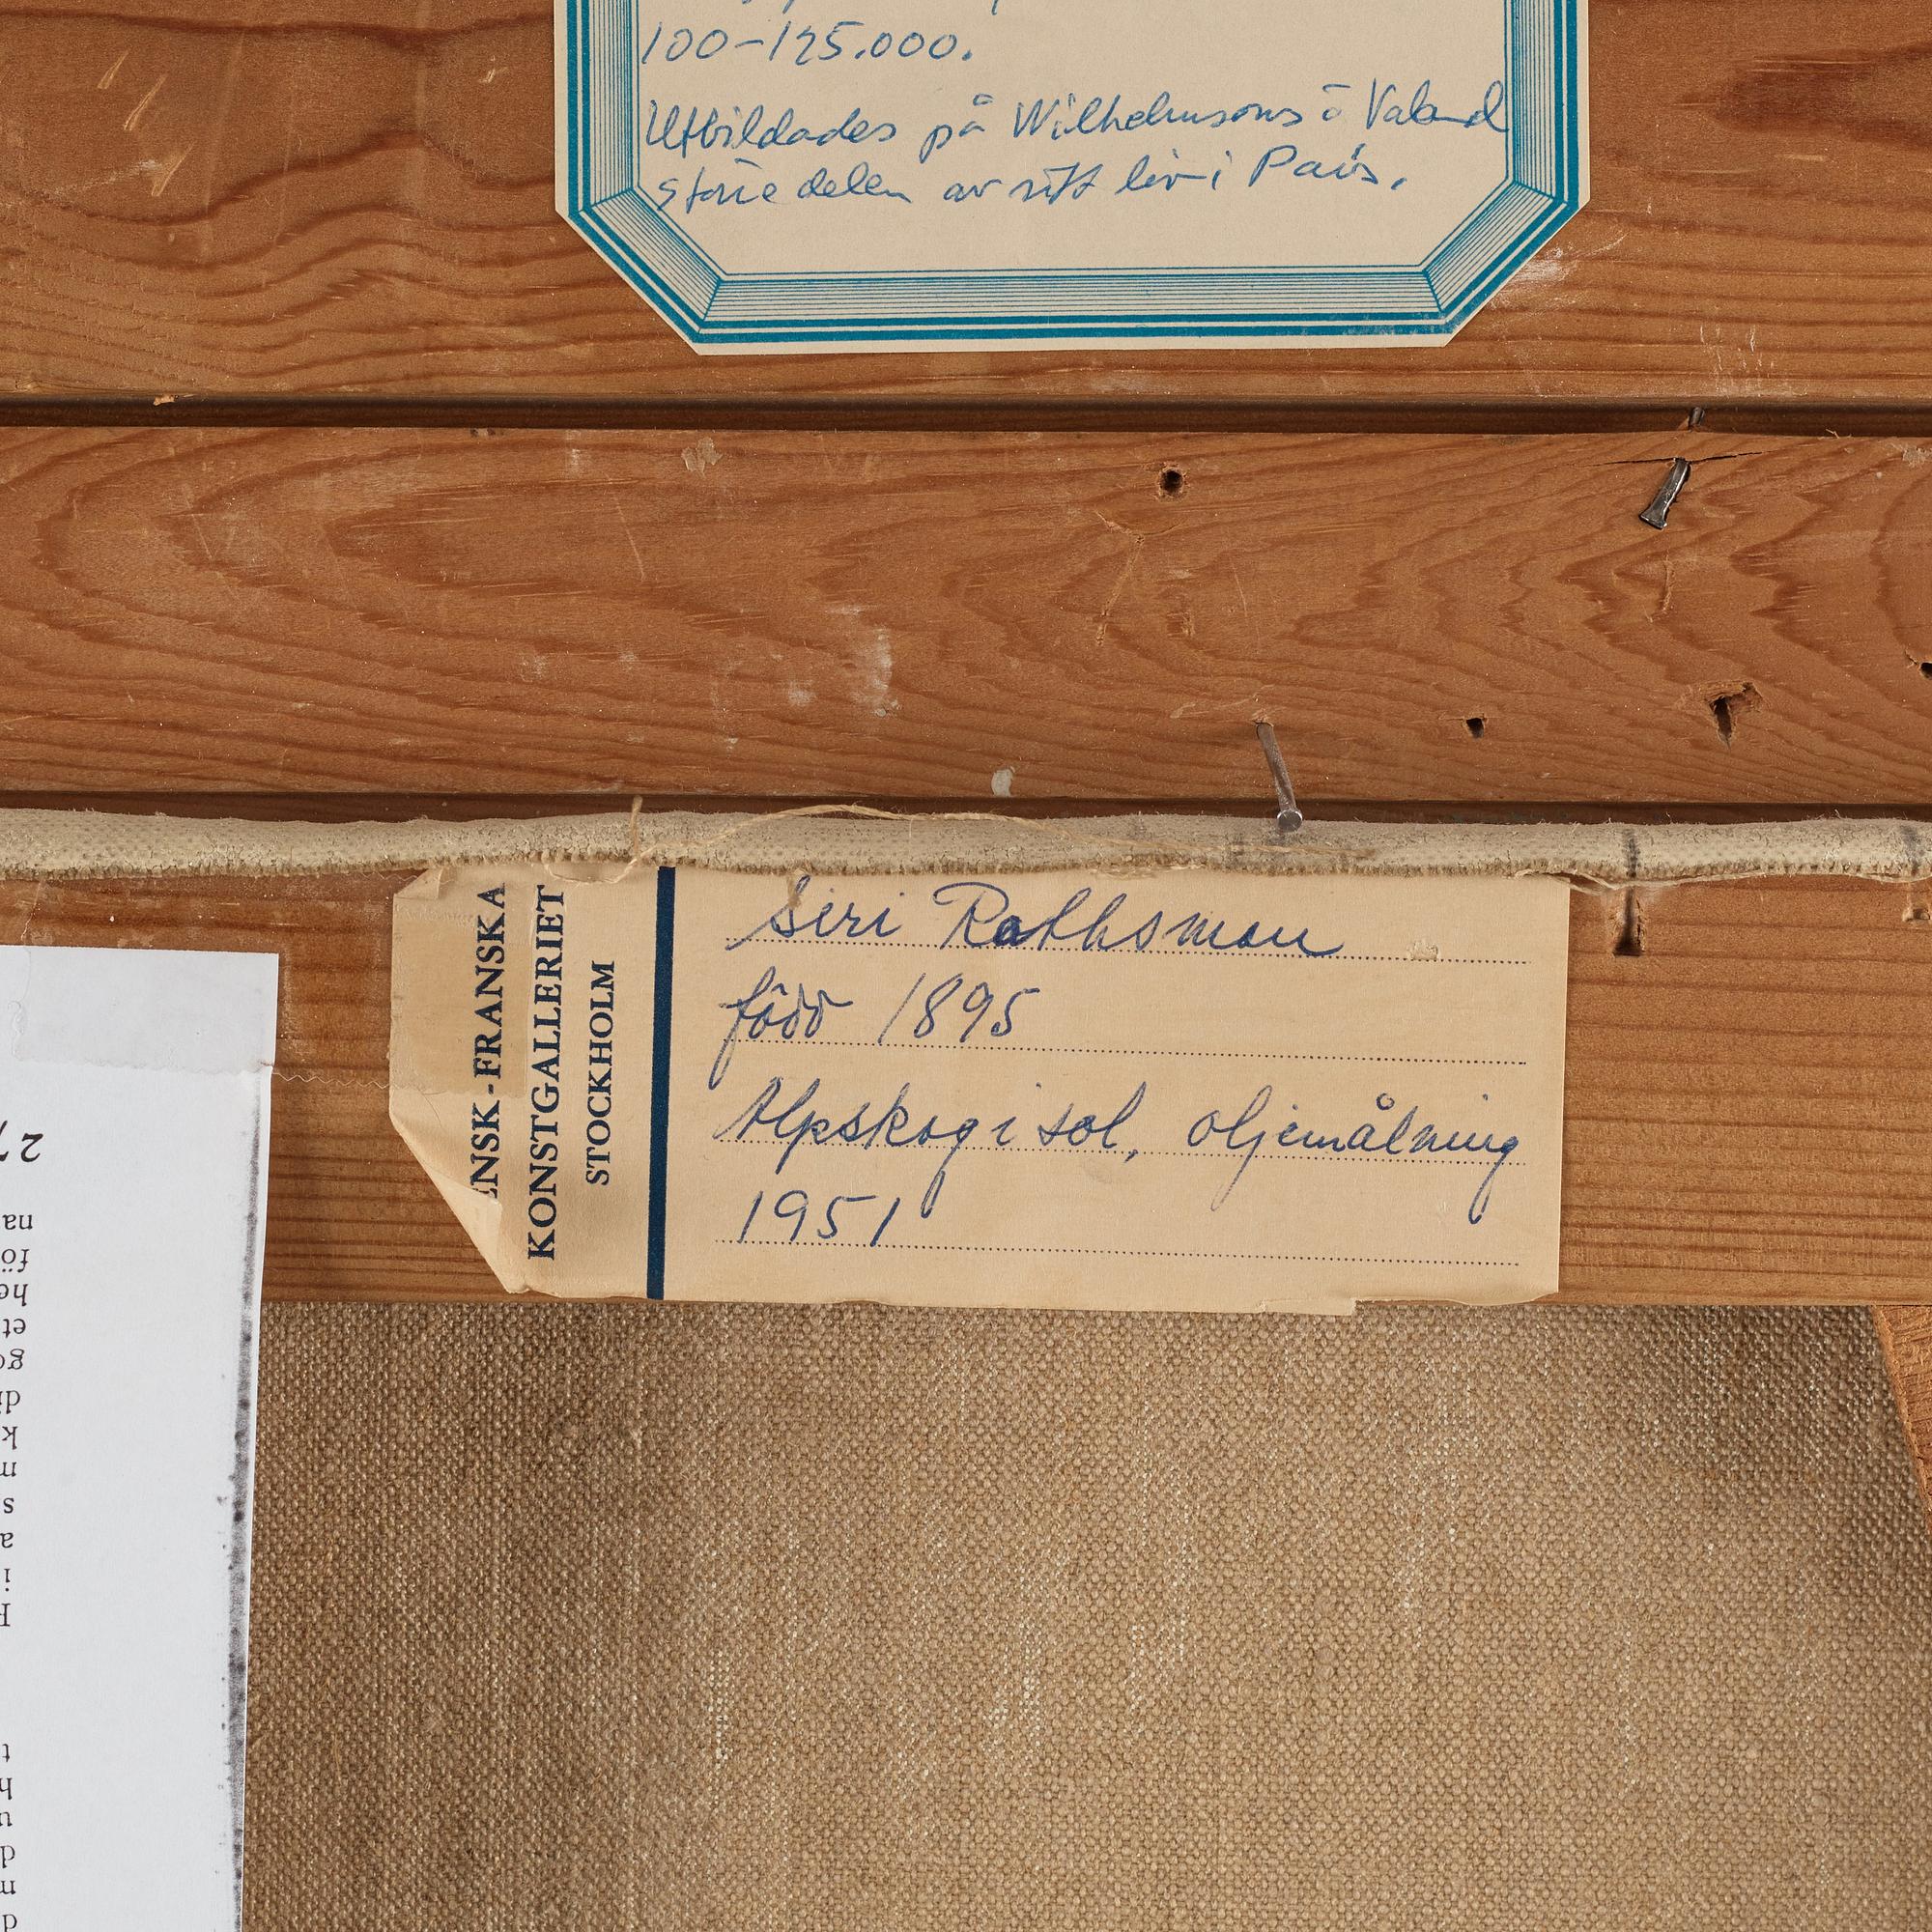 100–125.000.
Utbildades på Wilhelmsons o Valand
större delen av sitt liv i Paris.
ENSK-FRANSKA
KONSTGALLERIET
STOCKHOLM
Siri Rathsman
född 1895
Alpskog i sol, oljemålning
1951
27
na
fö
he
et
go
di
k
m
s
a
i
F
t
h
u
d
m
d